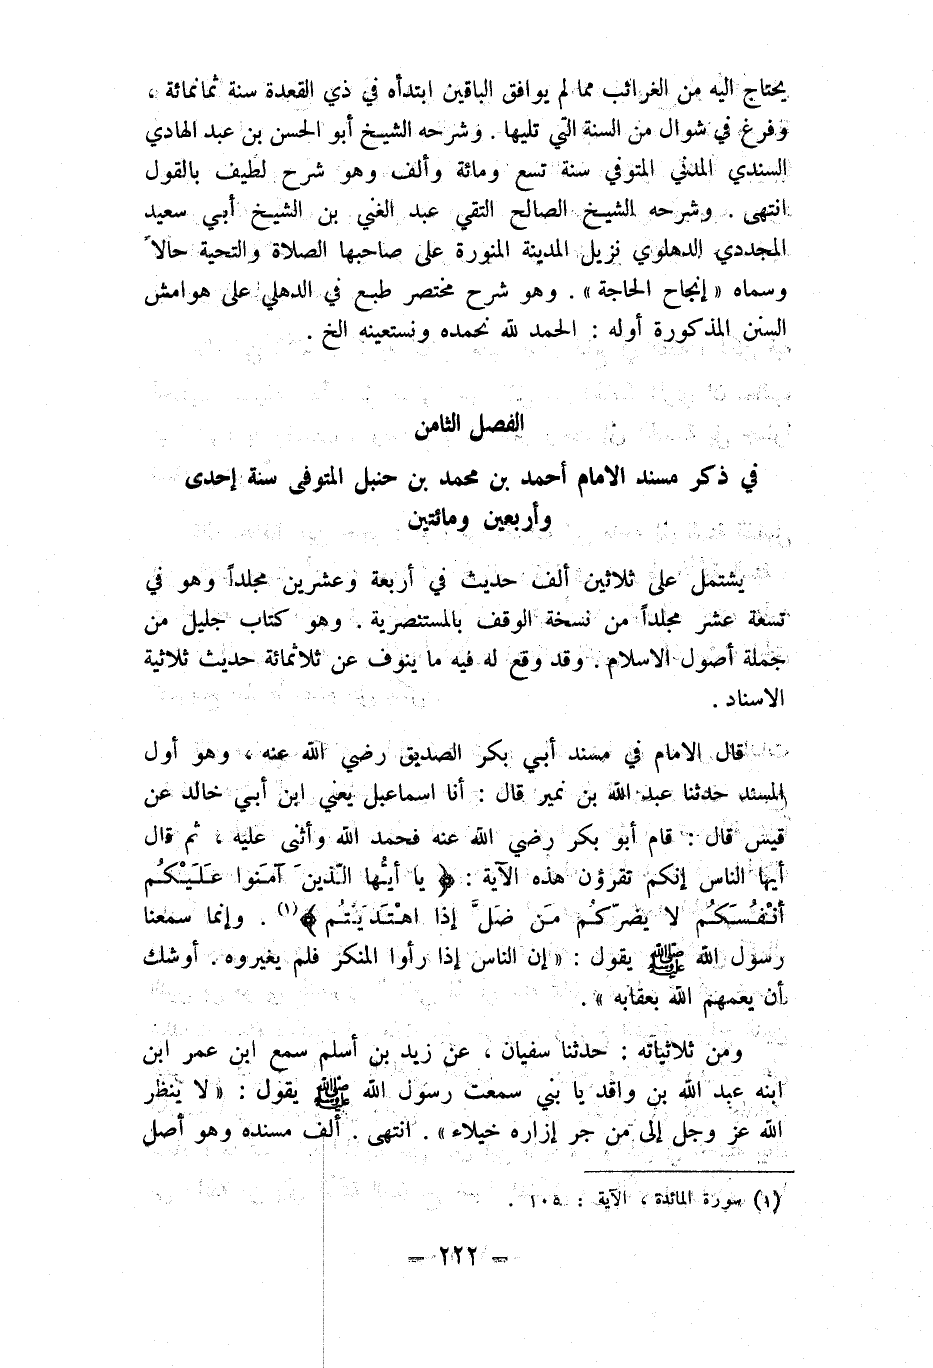 يحتاج اليه من الغرائب مما لم يوافق الباقين ابتدأه في ذي القعدة سنة ثمانمائة ،
وفرغ في شوال من السنة التي تليها . وشرحه الشيخ أبو الحسن بن عبد الهادي
السندي المدني المتوفي سنة تسع ومائة وألف وهو شرح لطيف بالقول
انتهى . وشرحه الشيخ الصالح التقي عبد الغني بن الشيخ أبي سعيد
المجددي الدهلوي نزيل المدينة المنورة على صاحبها الصلاة والتحية حالاً
وسماه « إنجاح الحاجة » . وهو شرح مختصر طبع في الدهلي على هوامش
السنن المذكورة أوله : الحمد لله نحمده ونستعينه الخ .
الفصل الثامن
في ذكر مسند الامام أحمد بن محمد بن حنبل المتوفى سنة إحدى
وأربعين ومائتين
يشتمل على ثلاثين ألف حديث في أربعة وعشرين مجلداً وهو في
تسعة عشر مجلداً من نسخة الوقف بالمستنصرية . وهو كتاب جليل من
جملة أصول الاسلام . وقد وقع له فيه ما ينوف عن ثلاثمائة حديث ثلاثية
الاسناد .
قال الامام في مسند أبي بكر الصديق رضي الله عنه ، وهو أول
المسند حدثنا عبد الله بن نمير قال : أنا اسماعيل يعني ابن أبي خالد عن
قيس قال : قام أبو بكر رضي الله عنه فحمد الله وأثنى عليه ، ثم قال
أيها الناس إنكم تقرؤن هذه الآية : ﴿ يا أيُّها الّذينَ آمَنوا عَلَيْكُم
أنْفُسَكُم لا يضرّكُم مَن ضَلَّ إذا اهْتَدَيْتُم ﴾(١) . وإنما سمعنا
رسول الله ﷺ يقول : « إن الناس إذا رأوا المنكر فلم يغيروه . أوشك
أن يعمهم الله بعقابه » .
ومن ثلاثياته : حدثنا سفيان ، عن زيد بن أسلم سمع ابن عمر ابن
ابنه عبد الله بن واقد يا بني سمعت رسول الله ﷺ يقول : « لا ينظر
الله عز وجل إلى من جر إزاره خيلاء » . انتهى . ألف مسنده وهو أصل
(١) سورة المائدة ، الآية : ١٠٥ .
– ٢٢٢ –